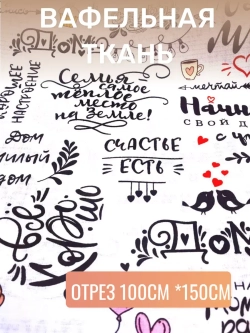 ВАФЕЛЬНАЯ
ТКАНЬ
ХОРОШЕЕ
НАСТРОЕНИЕ
Семья
самое
теплое
место
на Земле!
мечтай
СВОЙ
Дом
милый
дом
СЧАСТЬЕ
ЕСТЬ
Всё
Хорошо
ОТРЕЗ 100СМ *150СМ